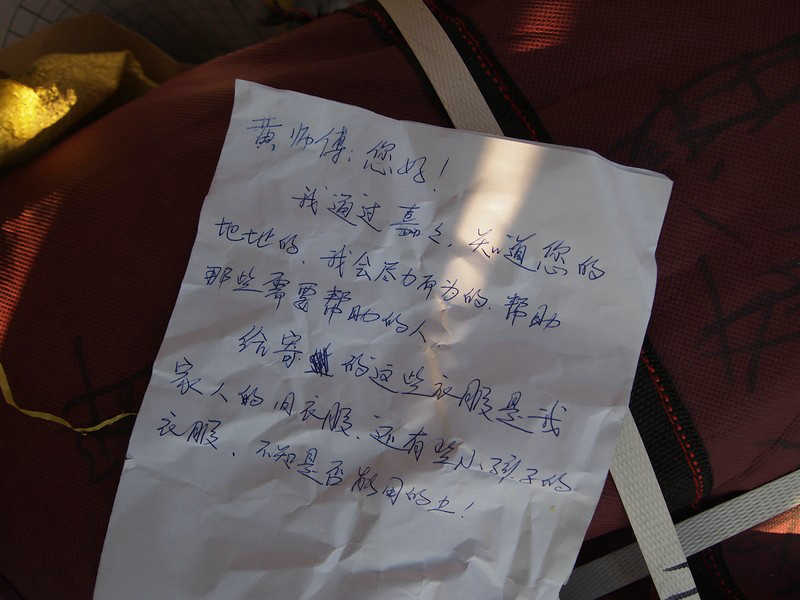 黄师傅:您好!
我通过嘉么,知道您的
地址的,我会尽力而为的,帮助
那些需要帮助的人。
给寄的这些衣服是我
家人的旧衣服,还有些小孩子的
衣服,不知是否能用的上!